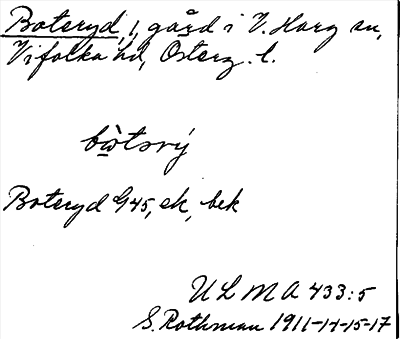 Boteryd, 1, gård i V. Harg sn,
Vifolka hd, Österg. l.
bὼtǝrý
Boteryd G45, ek, bek
ULMA 433:5
S. Rothman 1911-14-15-17